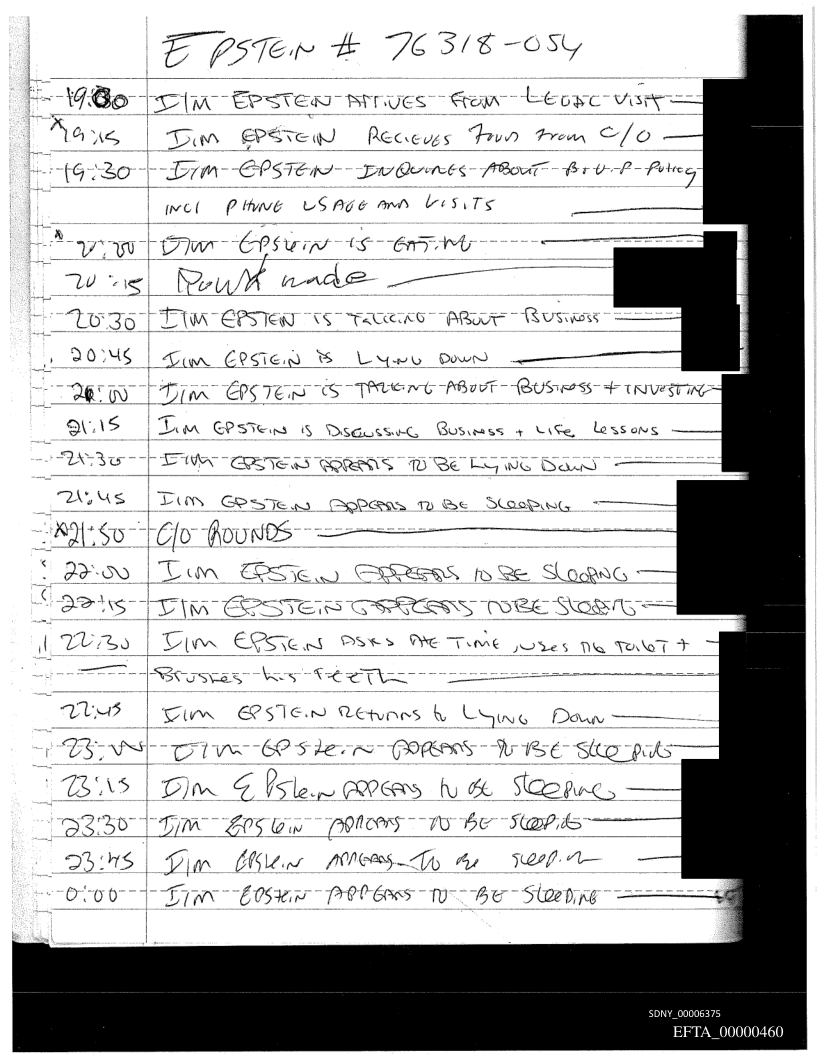 EPSTEIN # 76318-054
19:00 I/M EPSTEIN ARRIVES FROM LEGAL VISIT
x 19:15 I/M EPSTEIN RECIEVES FOOD FROM C/O
19:30 I/M EPSTEIN INQUIRES ABOUT B.O.P Policy
INCL PHONE USAGE AND VISITS
x 20:00 I/M EPSTEIN IS EATING
20:15 Round made
20:30 I/M EPSTEIN IS TALKING ABOUT BUSINESS
20:45 I/M EPSTEIN IS LYING DOWN
21:00 I/M EPSTEIN IS TALKING ABOUT BUSINESS + INVESTING
21:15 I/M EPSTEIN IS DISCUSSING BUSINESS + LIFE LESSONS
21:30 I/M EPSTEIN APPEARS TO BE LYING DOWN
21:45 I/M EPSTEIN APPEARS TO BE SLEEPING
x 21:50 C/O ROUNDS
22:00 I/M EPSTEIN APPEARS TO BE SLEEPING
22:15 I/M EPSTEIN APPEARS TO BE SLEEPING
22:30 I/M EPSTEIN ASKS THE TIME, USES THE TOILET +
BRUSHES his TEETH
22:45 I/M EPSTEIN RETURNS to LYING DOWN
23:00 I/M EPSTEIN APPEARS TO BE SLEEPING
23:15 I/M EPSTEIN APPEARS TO BE SLEEPING
23:30 I/M EPSTEIN APPEARS TO BE SLEEPING
23:45 I/M EPSTEIN APPEARS TO BE SLEEPING
0:00 I/M EPSTEIN APPEARS TO BE SLEEPING
SDNY_00006375
EFTA_00000460